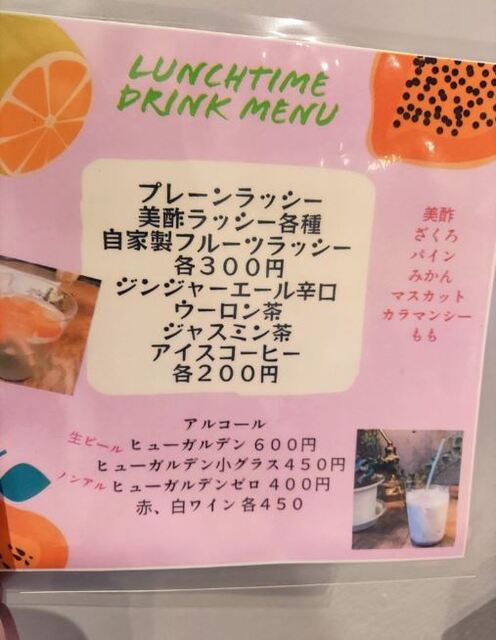 LUNCHTIME
DRINK MENU
プレーンラッシー
美酢ラッシー各種
自家製フルーツラッシー
各300円
ジンジャーエール辛口
ウーロン茶
ジャスミン茶
アイスコーヒー
各200円
美酢
ざくろ
パイン
みかん
マスカット
カラマンシー
もも
アルコール
生ビール ヒューガルデン 600円
ヒューガルデン小グラス 450円
ノンアル ヒューガルデンゼロ 400円
赤、白ワイン 各450